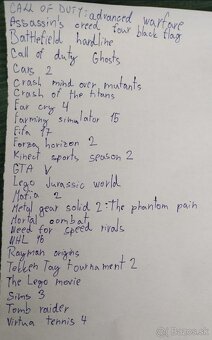 CALL OF DUTY: advanced warfare
Assassin's creed four black flag
Battlefield hardline
Call of duty Ghosts
Cars 2
Crash mind over mutants
Crash of the titans
Far cry 4
Farming simulator 15
Fifa 17
Forza horizon 2
Kinect sports season 2
GTA V
Lego Jurassic world
Mafia 2
Metal gear solid 2: The phantom pain
Mortal combat
Need for speed rivals
NHL 16
Rayman origins
Tekken Tag tournament 2
The Lego movie
Sims 3
Tomb raider
Virtua tennis 4
bazos.sk